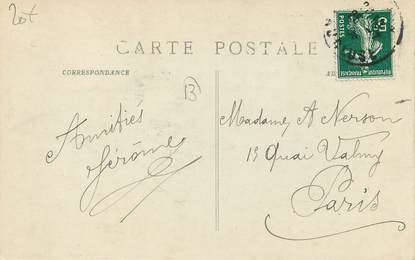 20t
CARTE POSTALE
CORRESPONDANCE
13
5c
POSTES
REPUBLIQUE FRANÇAISE
Amitiés
Jérôme
Madame A Nerson
19 Quai Valmy
Paris